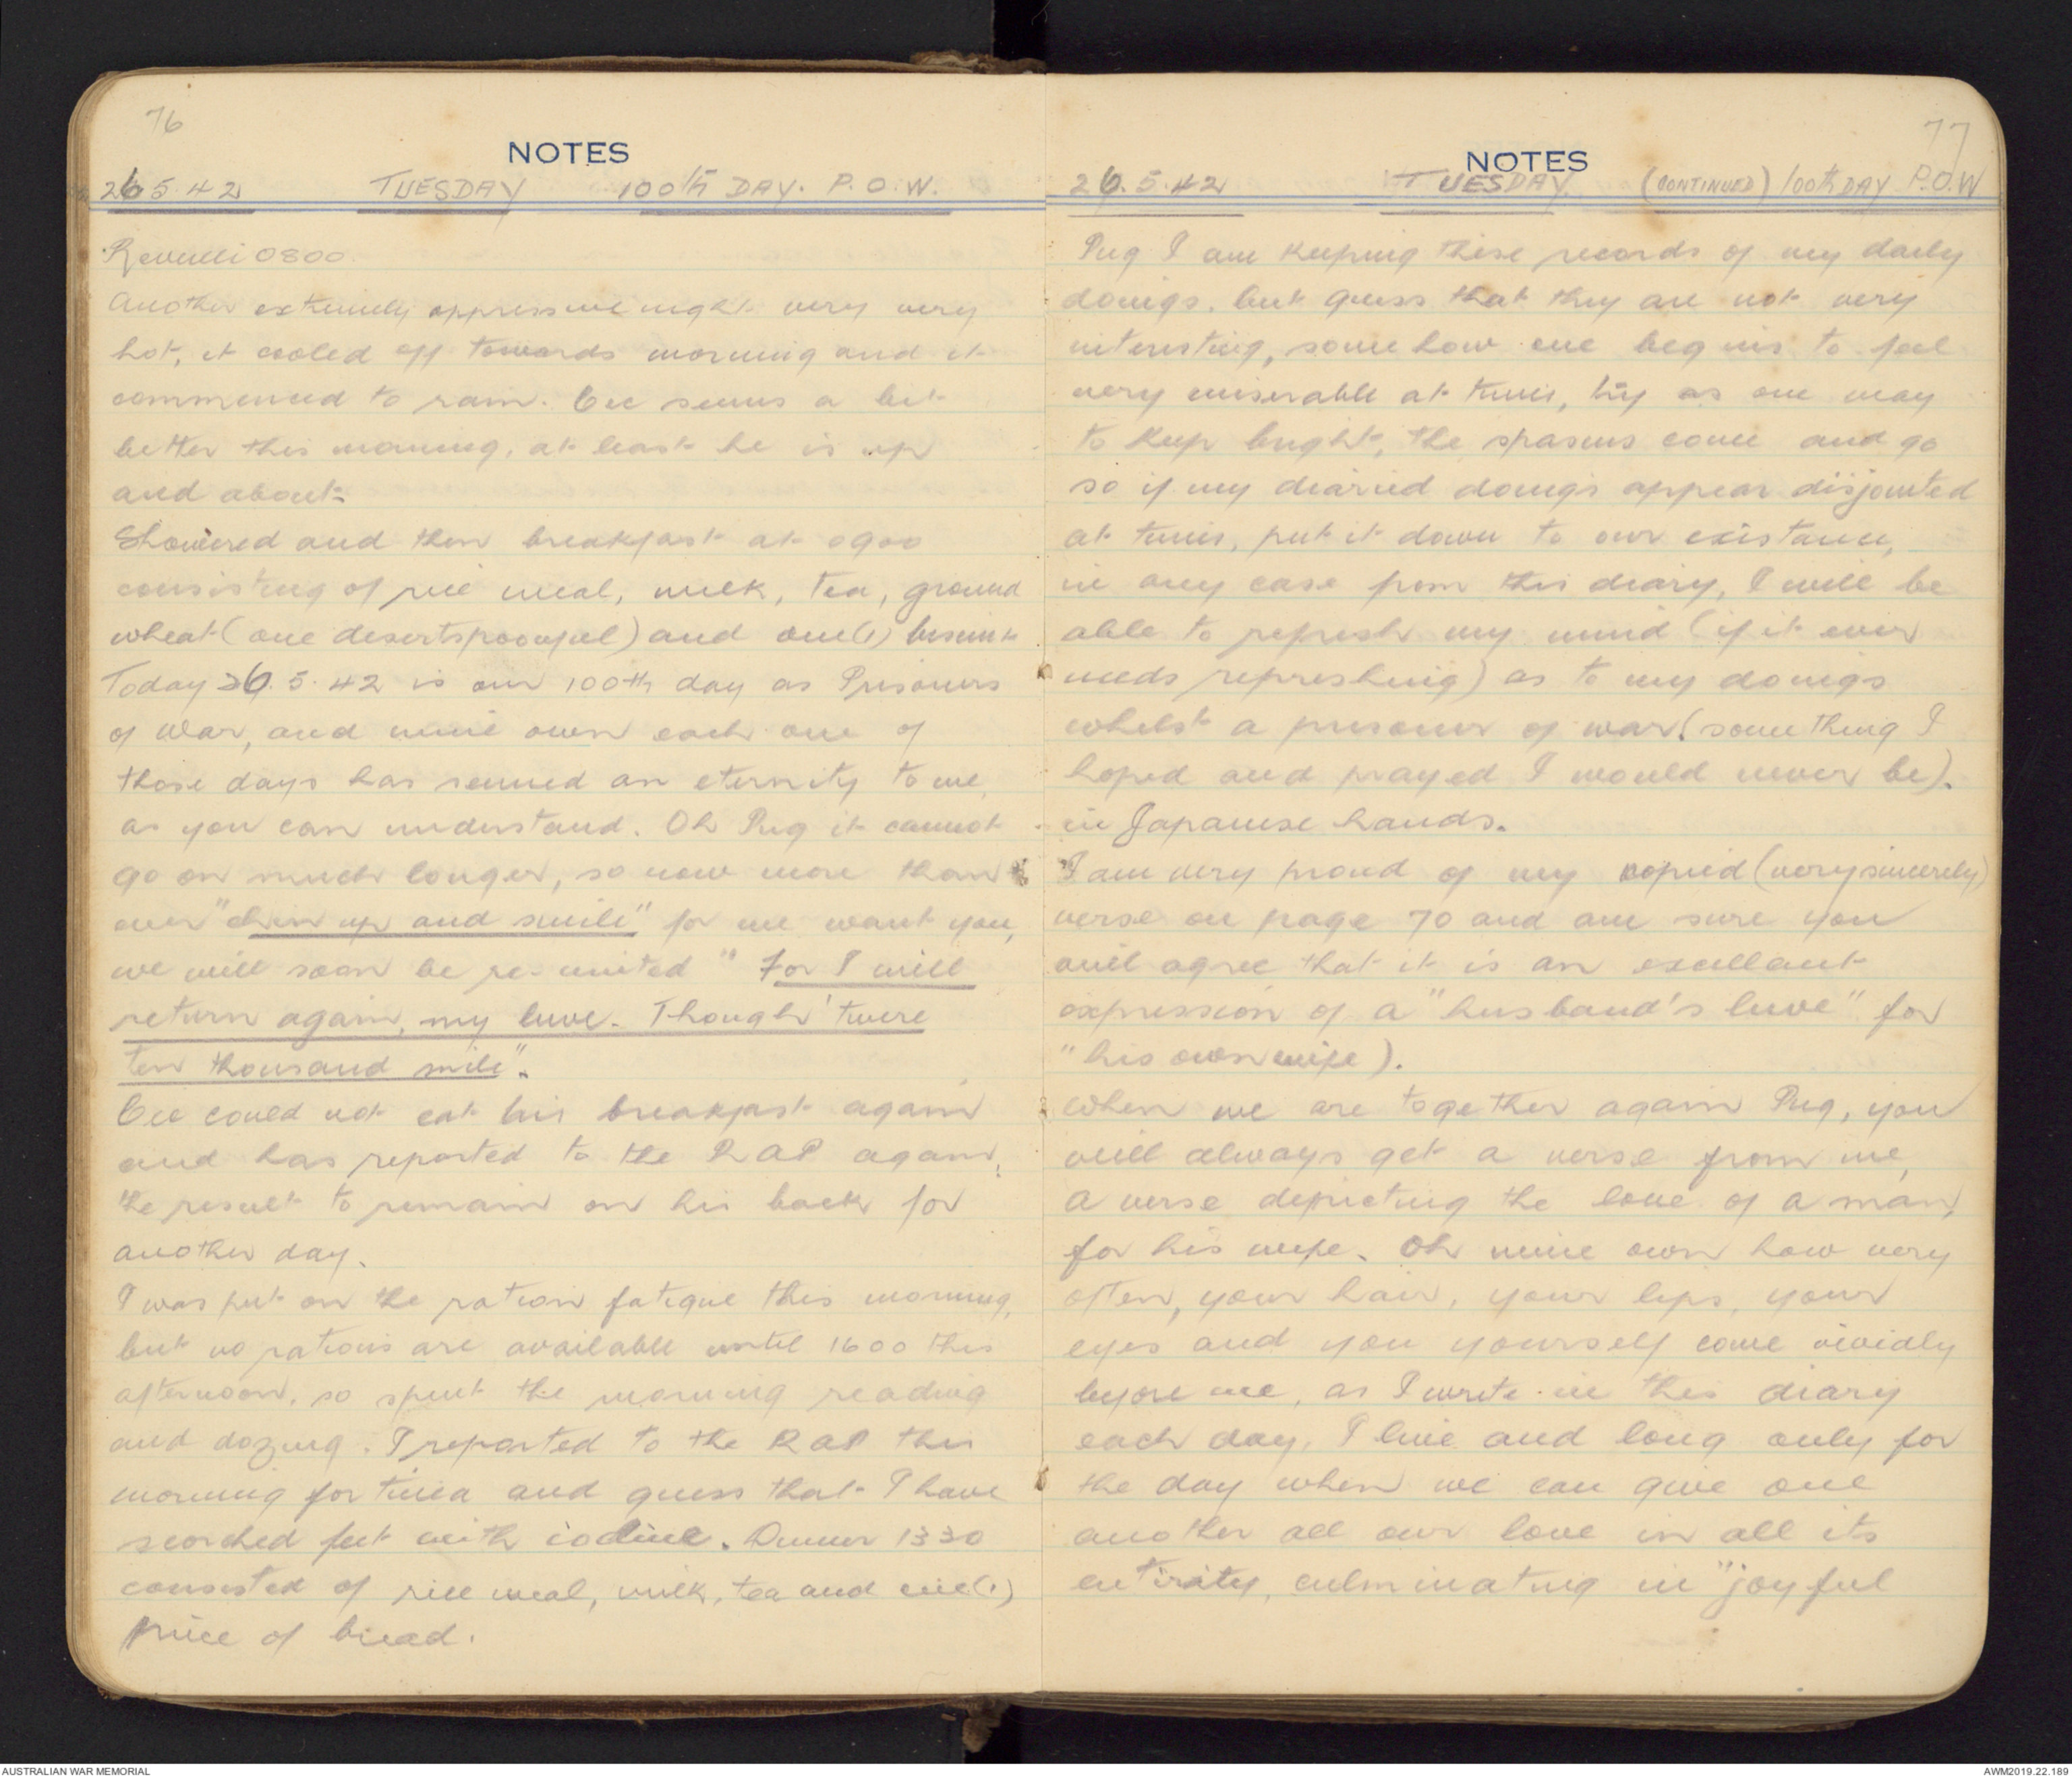 76
NOTES
26 5. 42 TUESDAY 100th DAY. P.O.W.
Reveilli 0800.
Another extremely oppressive night very very
hot, it cooled off towards morning and it
commenced to rain. Cec seems a bit
better this morning, at least he is up
and about.
Showered and then breakfast at 0900
consisting of rice meal, milk, tea, ground
wheat (one desertspoonful) and one (1) biscuit
Today 26. 5. 42 is our 100th day as Prisoners
of War, and mine own each one of
those days has seemed an eternity to me,
as you can understand. Oh Pug it cannot
go on much longer, so now more than
ever "chin up and smile" for we want you,
we will soon be re-united "For I will
return again, my luve. Though 'twere
ten thousand mile".
Cec could not eat his breakfast again
and has reported to the RAP again,
the result to remain on his back for
another day.
I was put on the ration fatigue this morning,
but no rations are available until 1600 this
afternoon, so spent the morning reading
and dozing. I reported to the RAP this
morning for tinea and guess that I have
scorched feet with iodine. Dinner 1330
consisted of rice meal, milk, tea and one (1)
piece of bread.
77
NOTES
26. 5. 42 TUESDAY (CONTINUED) 100th DAY P.O.W
Pug I am keeping these records of my daily
doings, but guess that they are not very
interesting, some how one begins to feel
very miserable at times, try as one may
to keep bright, the spasms come and go
so if my diaried doings appear disjointed
at times, put it down to our existance,
in any case from this diary, I will be
able to refresh my mind (if it ever
needs refreshing) as to my doings
whilst a prisoner of war (some thing I
hoped and prayed I would never be).
in Japanese hands.
I am very proud of my copied (very sincerely)
verse on page 70 and am sure you
will agree that it is an excellant
expression of a "husband's luve" for
"his own wife).
When we are together again Pug, you
will always get a verse from me,
a verse depicting the love of a man,
for his wife. Oh mine own how very
often, your hair, your lips, your
eyes and you yourself come vividly
before me, as I write in this diary
each day, I live and long only for
the day when we can give one
another all our love in all its
entirity, culminating in "joyful
AUSTRALIAN WAR MEMORIAL
AWM2019.22.189